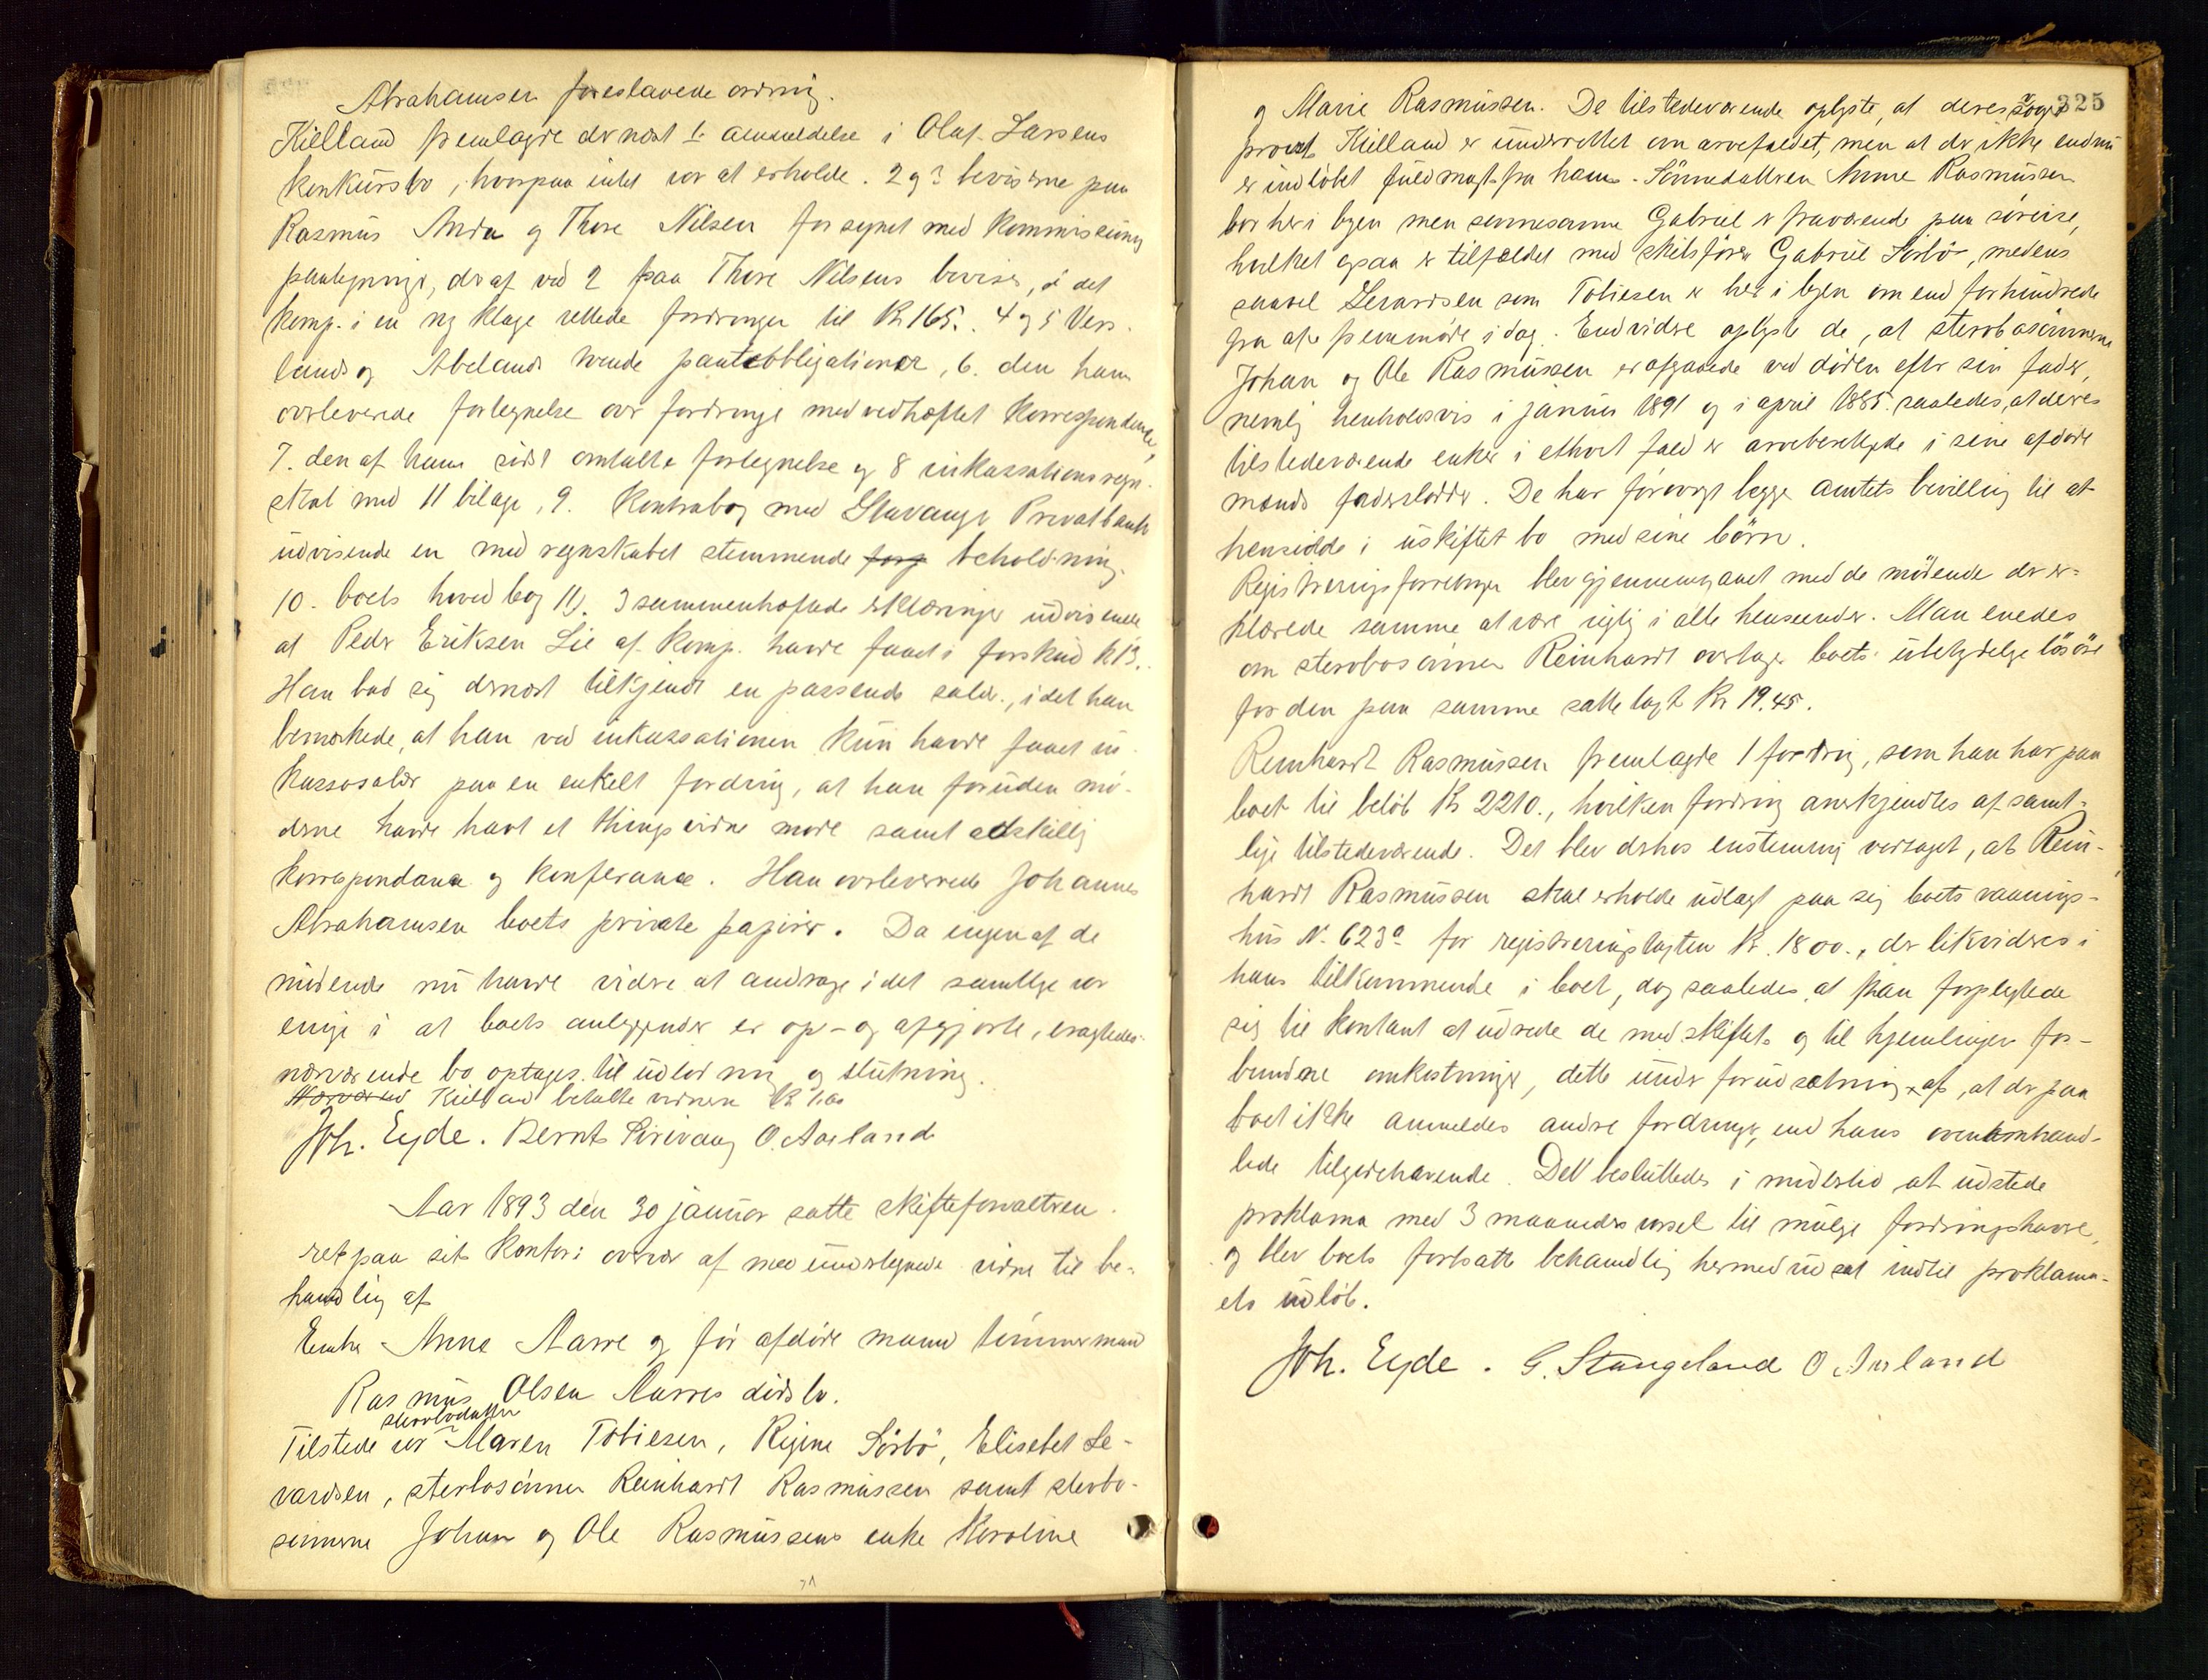 Abrahamsen foreslavede ordning.
Kielland fremlagde dernæst 1. anmeldelse i Olaf Larsens
konkursbo, hvorpaa intet var at erholde. 2 og 3 beviserne paa
Rasmus Anda og Thore Nilsen forsynet med kommissions
paategninger, deraf ved 2 paa Thore Nilsens beviser, i det
komp. i en ny klage rettede fordringer til Kr 165. 4 og 5 Vers-
lands og Abelands tvende panteobligationer, 6. den ham
overleverede fortegnelse over fordringer med vedhæftet korrespondence,
7. den af ham sidst omtalte fortegnelse og 8 inkassationsregn-
skab med 11 bilage, 9. Kontrabog med Stavanger Privatbank
udvisende en med regnskabet stemmende beholdning.
10. boets hovedbog 11). 3 sammenhæftede erklæringer udvisende
at Peder Eriksen Lie af komp. havde faaet i forskud kr 13.
Han bad sig dernæst tilkjendt en passende salær, idet han
bemærkede, at han ved inkassationen kun havde faaet in-
kassosalær paa en enkelt fordring, at han foruden mø-
derne havde havt et thingsvidne møde samt adskillig
korrespondance og konferance. Han overleverede Johannes
Abrahamsen boets private papirer. Da ingen af de
mødende nu havde videre at andrage idet samtlige var
enige i at boets anliggender er op- og afgjorte, eragtedes
nærværende bo optages til udlodning og slutning.
Kielland betalte vidnerne Kr 1.00
Joh. Eyde. Bernt Sirivaag O. Aarland
Aar 1893 den 30 januar satte skifteforvalteren
ret paa sit kontor i overvær af medundertegnede vidner til be-
handling af
Enke Anna Aarre og før afdøde mand tømmermand
Rasmus Olsen Aarres dødsbo.
stervbodøttre
Tilstede var Maren Tobiesen, Regine Sörbö, Elisebet Le-
vardsen, stervbosönnen Reinhardt Rasmussen samt stervbo-
sønnerne Johan og Ole Rasmussens enke Karoline
325
og Marie Rasmussen. De tilstedeværende oplyste, at deres
provst Kielland er underrettet om arvefaldet, men at der ikke endnu
er indløbet fuldmagt fra ham. Sönnedatteren Anne Rasmussen
bor her i byen men sønnesønne Gabriel er fraværende paa søreise,
hvilket ogsaa er tilfældet med skibsfører Gabriel Sörbö, medens
saavel Levardsen som Tobiesen er her i byen om end forhindrede
fra at fremmøde i dag. Endvidere oplyste de, at stervbosönnerne
Johan og Ole Rasmussen er afgaaede ved døden efter sin fader,
nemlig henholdsvis i januar 1891 og i april 1885. saaledes, at deres
tilstedeværende enker i ethvert fald er arveberettigede i sine afdøde
mænds faderslodder. De har forøvrigt begge amtets bevilling til at
hensidde i uskiftet bo med sine börn.
Registreringsforretningen blev gjennemgaaet med de mödende der er-
klærede samme at være rigtig i alle henseender. Man enedes
om stervbosönnen Reinhardt overtager boets ubetydelige lösöre
for den paa samme satte taxt Kr 19.45.
Reinhardt Rasmussen fremlagde 1 fordring, som han har paa
boet til beløb Kr 2210., hvilken fordring anerkjendtes af samt-
lige tilstedeværende. Det blev derhos enstemmig vedtaget, at Rein-
hardt Rasmussen skal erholde udlagt paa sig boets vaanings-
hus No. 623a for registreringstaxten Kr. 1800., der likvideres i
hans tilkommende i boet, dog saaledes at han forpligtede
sig til kontant at udrede de med skiftet og til hjemlingen for-
bundne omkostninger, dette under forudsætning af, at der paa
boet ikke anmeldes andre fordringer, end hans ovenomhand-
lede tilgodehavende. Det besluttedes i midlertid at udstede
proklama med 3 maaneders varsel til mulige fordringshavere,
og blev boets fortsatte behandling hermed udsat indtil proklama-
ets udløb.
Joh. Eyde. G. Stangeland O. Aarland